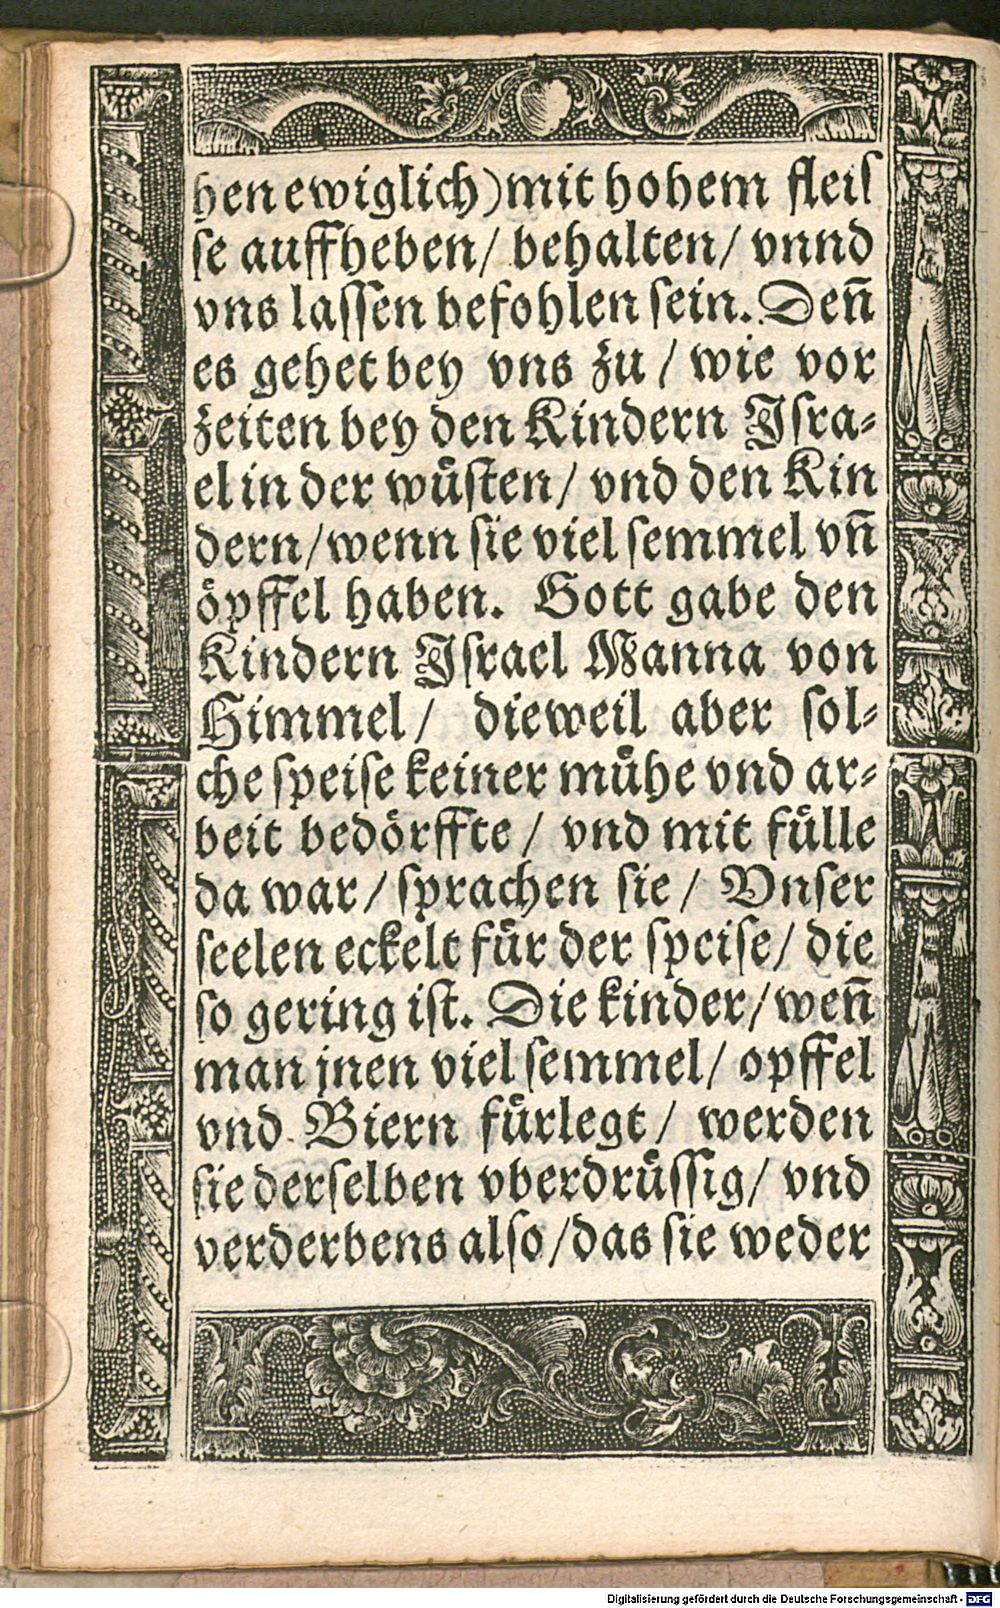 hen ewiglich) mit hohem fleiſ
ſe auffheben/ behalten/ vnnd
vns laſſen befohlen ſein. Den̄
es gehet bey vns zu / wie vor
zeiten bey den Kindern Iſra⸗
el in der wuͤſten/ vnd den Kin
dern/wenn ſie viel ſemmel vn̄
oͤpffel haben. Gott gabe den
Kindern Iſrael Manna von
Himmel/ dieweil aber ſol⸗
che ſpeiſe keiner muͤhe vnd ar⸗
beit bedoͤrffte / vnd mit fuͤlle
da war/ ſprachen ſie/ Vnſer
ſeelen eckelt fuͤr der ſpeiſe/ die
ſo gering iſt. Die kinder/ wen̄
man jnen viel ſemmel/ opffel
vnd Biern fuͤrlegt/ werden
ſie derſelben vberdruͤſſig/ vnd
verderbens alſo /das ſie weder
Digitalisierung gefördert durch die Deutsche Forschungsgemeinschaft - DFG